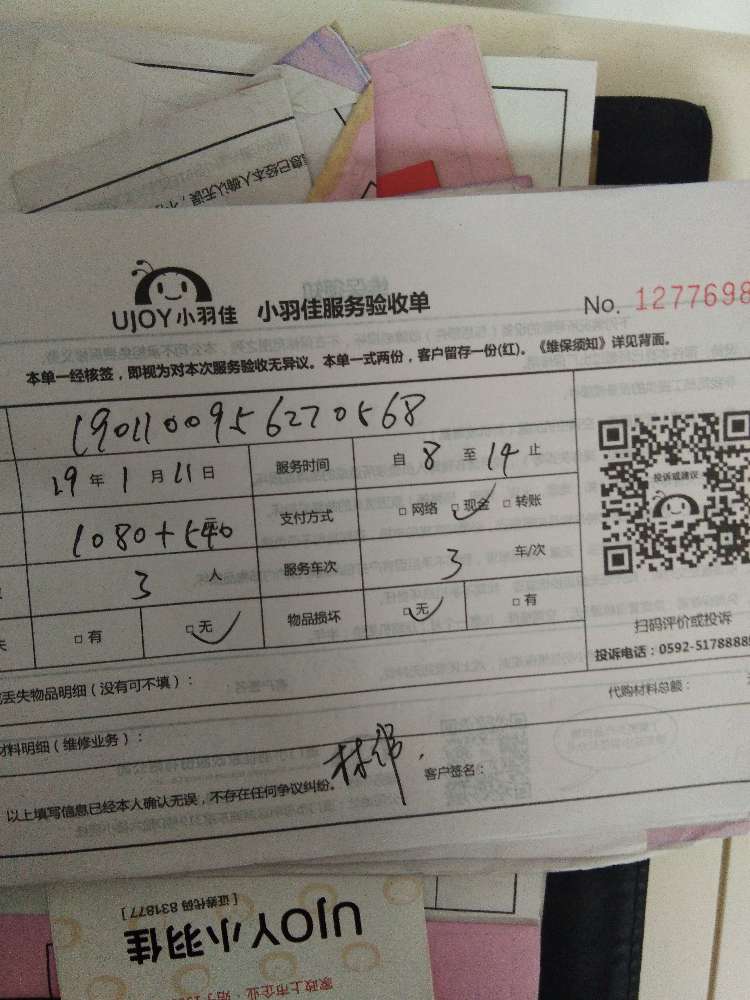 息已经本人确认无误，不
UJOY小羽佳 小羽佳服务验收单 No. 1277698
本单一经核签，即视为对本次服务验收无异议。本单一式两份，客户留存一份(红)。《维保须知》详见背面。
19年1月11日 服务时间 自8至14止
1080+540 支付方式 □网络 □现金 □转账
3人 服务车次 3 车/次
□有 □无 物品损坏 □无 □有
投诉或建议
扫码评价或投诉
投诉电话：0592-5178888
丢失物品明细（没有可不填）： 代购材料总额：
材料明细（维修业务）：
以上填写信息已经本人确认无误，不存在任何争议纠纷。 客户签名：
[证券代码 831877]
UJOY小羽佳
家政上市企业